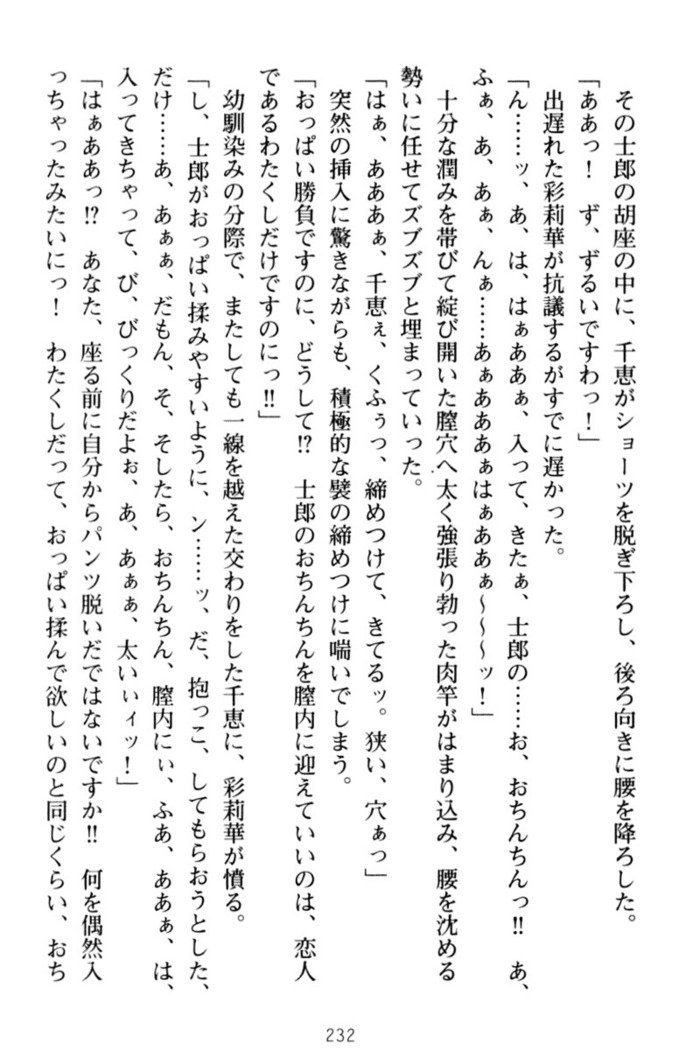 その士郎の胡座の中に、千恵がショーツを脱ぎ下ろし、後ろ向きに腰を降ろした。
「ああっ！　ず、ずるいですわっ！」
出遅れた彩莉華が抗議するがすでに遅かった。
「ん……ッ、あ、は、はぁああぁ、入って、きたぁ、士郎の……お、おちんちんっ!!　あ、
ふぁ、あ、あぁ、んぁ……あぁあああぁはぁああぁ～～～ッ！」
十分な潤みを帯びて綻び開いた膣穴へ太く強張り勃った肉竿がはまり込み、腰を沈める
勢いに任せてズブズブと埋まっていった。
「はぁ、あああぁ、千恵ぇ、くふぅっ、締めつけて、きてるッ。狭い、穴ぁっ」
突然の挿入に驚きながらも、積極的な襞の締めつけに喘いでしまう。
「おっぱい勝負ですのに、どうして!?　士郎のおちんちんを膣内に迎えていいのは、恋人
であるわたくしだけですのにっ!!」
幼馴染みの分際で、またしても一線を越えた交わりをした千恵に、彩莉華が憤る。
「し、士郎がおっぱい揉みやすいように、ン……ッ、だ、抱っこ、してもらおうとした、
だけ……あ、あぁぁ、だもん、そ、そしたら、おちんちん、膣内にぃ、ふあ、ああぁ、は、
入ってきちゃって、び、びっくりだよぉ、あ、あぁぁ、太いぃィッ！」
「はぁああっ!?　あなた、座る前に自分からパンツ脱いだではないですか!!　何を偶然入
っちゃったみたいにっ！　わたくしだって、おっぱい揉んで欲しいのと同じくらい、おち
232